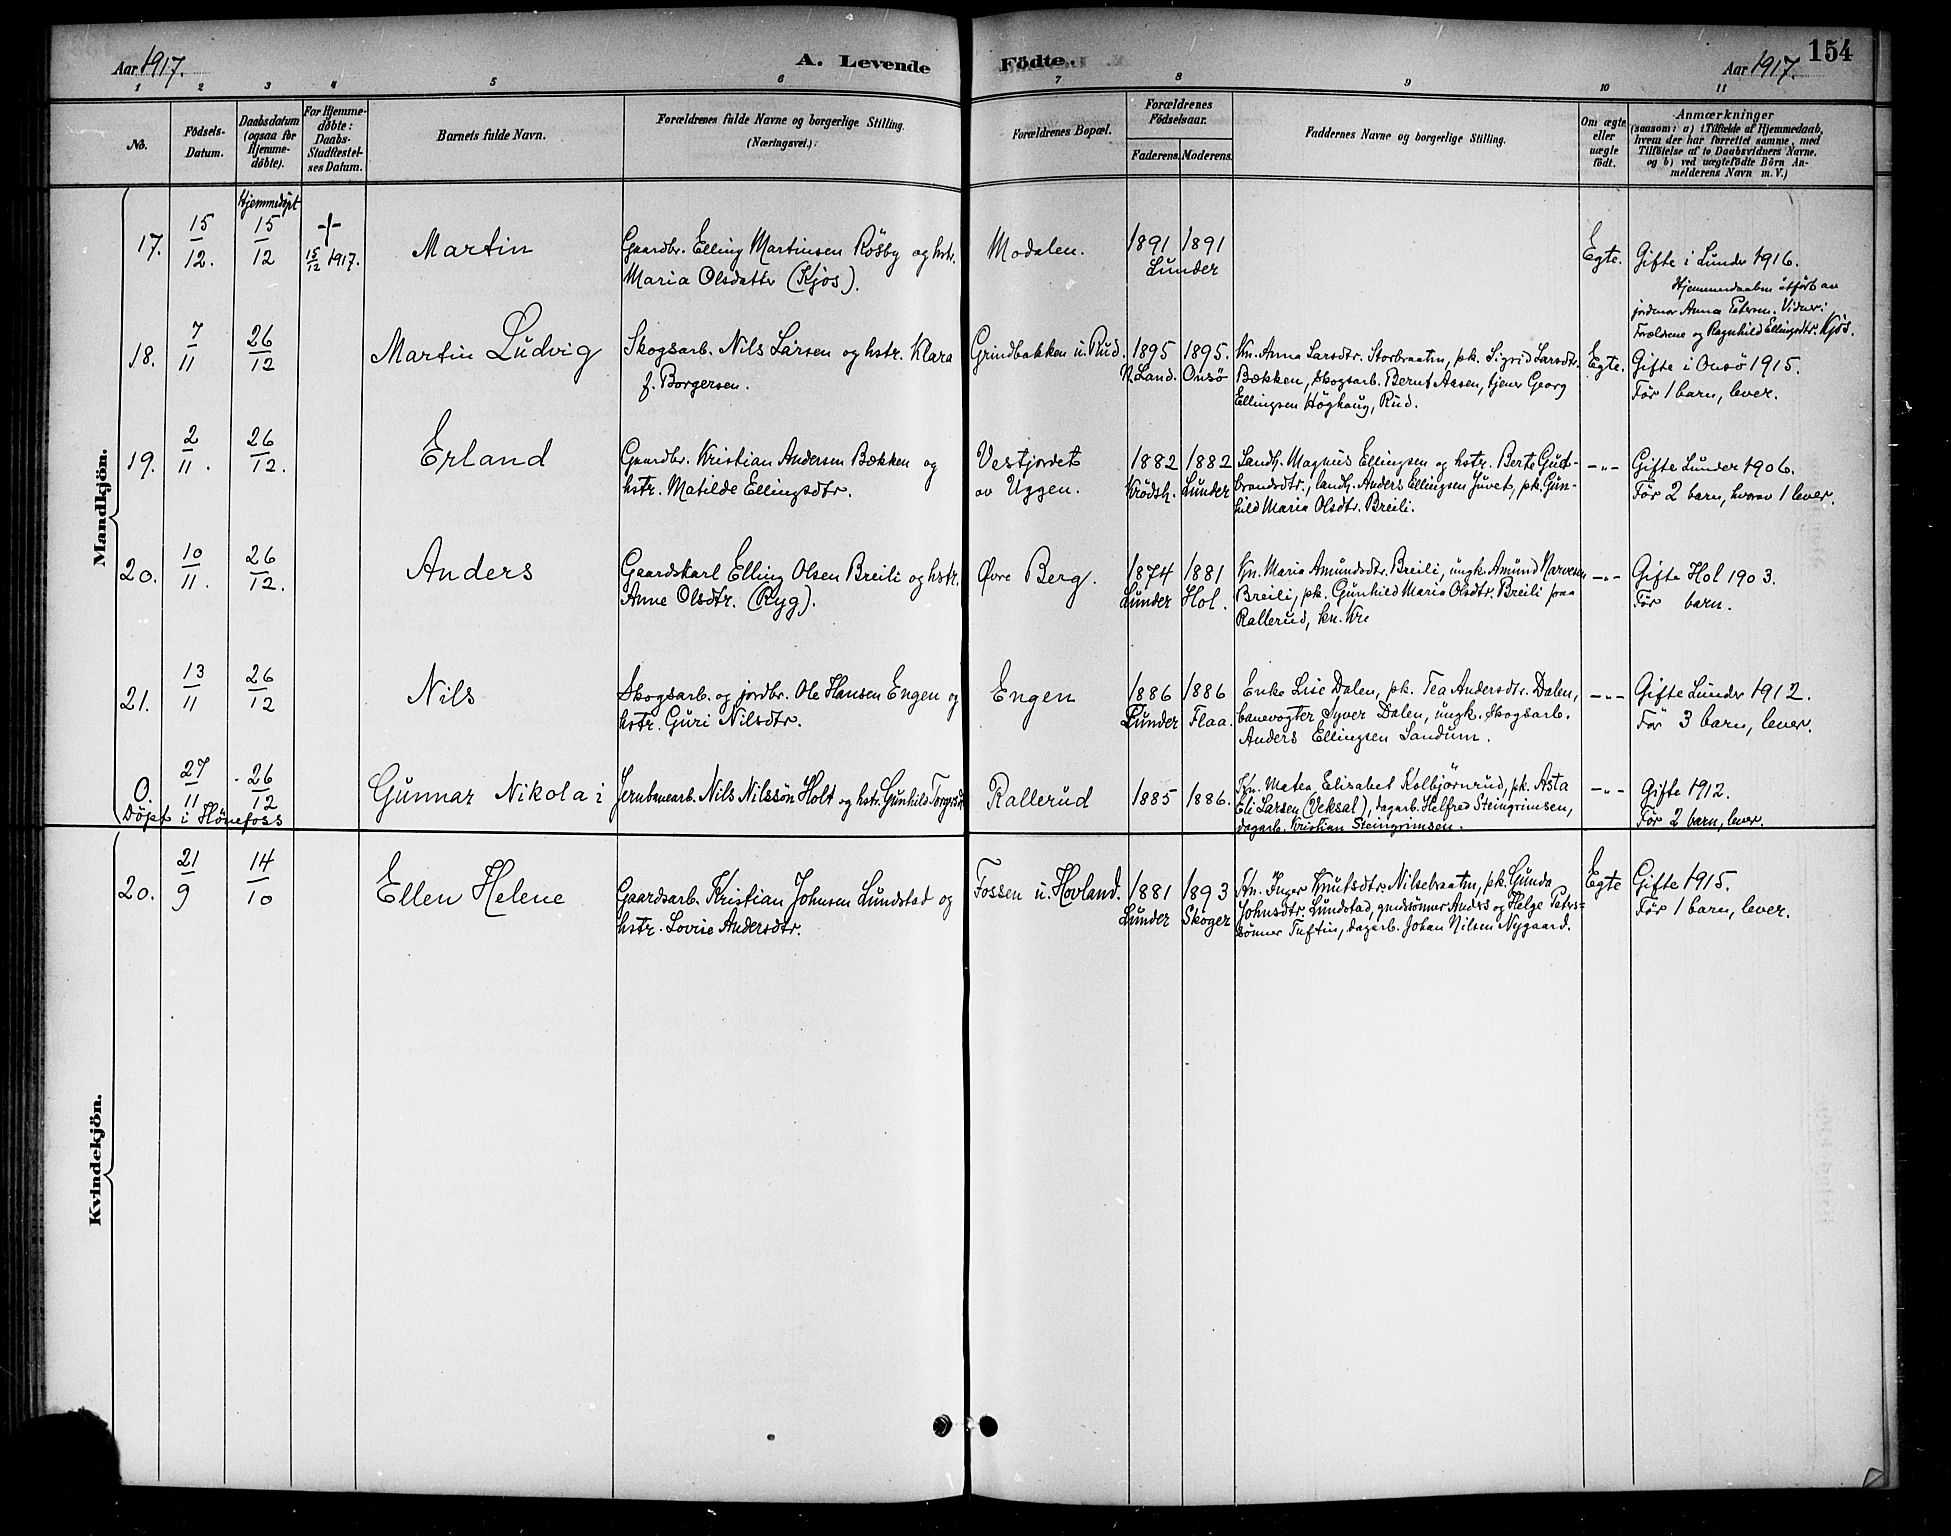 Aar 1917. A. Levende Födte. Aar 1917. 154
1 2 3 4 5 6 7 8 9 10 11
No.
Födsels-
Datum.
Daabsdatum
(ogsaa for
Hjemme-
döbte).
For Hjemme-
döbte:
Daabs-
Stadfæstel-
ses Datum.
Barnets fulde Navn.
Forældrenes fulde Navne og borgerlige Stilling.
(Næringsvei.)
Forældrenes Bopæl.
Forældrenes
Födselsaar.
Faderens. Moderens.
Faddernes Navne og borgerlige Stilling.
Om ægte
eller
uægte
födt.
Anmærkninger
(saasom: a) i Tilfælde af Hjemmedaab,
hvem der har forrettet samme, med
Tilföielse af to Daabsvidners Navne.
og b) ved uægtefödte Börn An-
melderens Navn m. V.)
Mandkjön.
Hjemmedöpt
17. 15/12. 15/12 + 15/12 1917.
Martin
Gaardbr. Elling Martinsen Rösby og hstr.
Maria Olsdatter (Kjos).
Modalen.
1891 1891
Lunder
Egte.
Gifte i Lunder 1916.
Hjemmedaaben utfört av
jordmor Anna Petersen. Vidner:
Forældrene og Ragnhild Ellingsdtr. Kjös.
18. 7/11 26/12
Martin Ludvig
Skogsarb. Nils Larsen og hstr. Klara
f. Borgersen.
Grindbakken u. Rud.
1895 1895.
N. Land. Onsö
Kn. Anna Larsdtr. Storbraaten, pk. Sigrid Larsdtr.
Bækken, skogsarb. Bernt Aasen, tjener Georg
Ellingsen Höghaug, Rud.
Egte.
Gifte i Onsö 1915.
Før 1 barn, lever.
19. 2/11. 26/12.
Erland
Gaardbr. Kristian Andersen Bækken og
hstr. Matilde Ellingsdtr.
Vestjordet
av Uggen.
1882 1882
Krødsh. Lunder
Landh. Magnus Ellingsen og hstr. Berte Gut-
brandsdtr., landh. Anders Ellingsen Juvet, pk. Gun-
hild Maria Olsdtr. Breili.
-"-
Gifte Lunder 1906.
Før 2 barn, hvorav 1 lever.
20. 10/11. 26/12.
Anders
Gaardskarl Elling Olsen Breili og hstr.
Anne Olsdtr. (Ryg).
Øvre Berg.
1874 1881
Lunder Hol.
Kn. Maria Amundsdtr. Breili, ungk. Amund Narvesen
Breili, pk. Gunhild Maria Olsdtr. Breili paa
Rallerud, kn. Kri
-"-
Gifte Hol 1903.
Før barn.
21. 13/11 26/12
Nils
Skogsarb. og jordbr. Ole Hansen Engen og
hstr. Guri Nilsdtr.
Engen
1886 1886
Lunder Flaa.
Enke Lise Dalen, pk. Tea Andersdtr. Dalen,
banevogter Syver Dalen, ungk. skogsarb.
Anders Ellingsen Sandum.
-"-
Gifte Lunder 1912.
Før 3 barn, lever.
0 27/11 26/12
Döpt i Hönefoss
Gunnar Nikolai
Jernbanearb. Nils Nilssön Holt og hstr. Gunhild Torgersdtr.
Rallerud
1885 1886.
Kn. Matea Elisabet Kolbjörnrud, pk. Asta
Eli Larsen (Veksal), dagarb. Helfred Steingrimsen,
dagarb. Kristian Steingrimsen.
-"-
Gifte 1912.
Før 2 barn, lever.
Kvindekjön.
20. 21/9 14/10
Ellen Helene
Gaardsarb. Kristian Johnsen Lundstad og
hstr. Lovise Andersdtr.
Fossen u. Hovland.
1881 1893
Lunder Skoger
Kn. Inger Knutsdtr. Nilsebraaten, pk. Gunda
Johnsdtr. Lundstad, grdssönner Anders og Helge Peters-
sönner Tuftin, dagarb. Johan Nilsen Nygaard.
Egte
Gifte 1915.
Før 1 barn, lever.